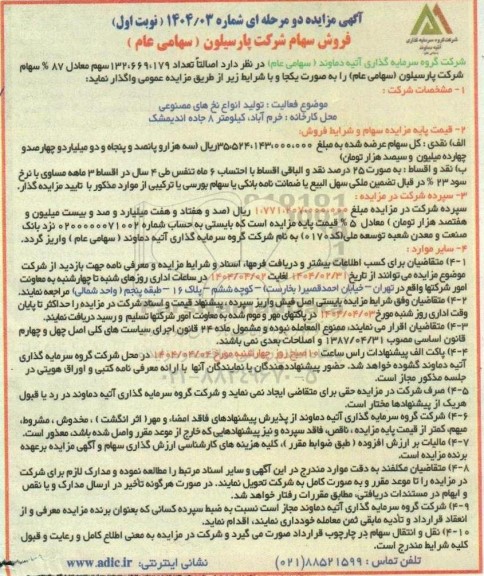 آگهی مزایده دو مرحله ای شماره ۱۴۰۴/۰۳ ( نوبت اول)
فروش سهام شرکت پارسیلون ( سهامی عام )
شرکت گروه سرمایه گذاری آتیه دماوند
شرکت گروه سرمایه گذاری آتیه دماوند ( سهامی عام) در نظر دارد اصالتاً تعداد ۱۳۲،۶۶۹،۱۷۹ سهم معادل ۸۷ % سهام
شرکت پارسیلون (سهامی عام) را به صورت یکجا و با شرایط زیر از طریق مزایده عمومی واگذار نماید:
۱- مشخصات شرکت :
موضوع فعالیت : تولید انواع نخ های مصنوعی
محل کارخانه : خرم آباد، کیلومتر ۸ جاده اندیمشک
۲- قیمت پایه مزایده سهام و شرایط فروش:
الف) نقدی : کل سهام عرضه شده به مبلغ ۳۵،۵۲۴،۱۴۳،۰۰۰،۰۰۰ ریال (سه هزار و پانصد و پنجاه و دو میلیارد و چهارصد و
چهارده میلیون و سیصد هزار تومان)
ب) نقد و اقساط : به صورت ۲۵ درصد نقد و الباقی اقساط با احتساب ۶ ماه تنفس طی ۴ سال در اقساط ۳ ماهه مساوی با نرخ
سود ۲۳ % در قبال تضمین ملکی سهل البیع یا ضمانت نامه بانکی یا سهام بورسی یا ترکیبی از موارد مذکور با تایید مزایده گذار.
۳- سپرده شرکت در مزایده :
سپرده شرکت در مزایده مبلغ ریال (صد و هفتاد و هفت میلیارد و صد و بیست میلیون و
هفتصد هزار تومان ) معادل ۵ % قیمت پایه مزایده است که بایستی به حساب شماره ۰۲۰۰۰۰۰۰۷۱۰۰۲ نزد بانک
صنعت و معدن شعبه توسعه ملی(کد ۰۱۷) به نام شرکت گروه سرمایه گذاری آتیه دماوند ( سهامی عام ) واریز گردد.
۴- سایر موارد :
۴-۱) متقاضیان برای کسب اطلاعات بیشتر و دریافت فرمها، اسناد و شرایط مزایده و معرفی نامه جهت بازدید از شرکت
موضوع مزایده می توانند از تاریخ ۱۴۰۴/۰۲/۳۱ لغایت ۱۴۰۴/۰۴/۰۲ در ساعات اداری روزهای شنبه تا چهارشنبه به معاونت
امور شرکتها واقع در تهران – خیابان احمدقصیر( بخارست) – کوچه ششم – پلاک ۱۶ – طبقه پنجم ( واحد شمالی) مراجعه نمایند.
۴-۲) متقاضیان وفق شرایط مزایده بایستی اصل فیش واریز سپرده ، پیشنهاد قیمت و اسناد شرکت در مزایده را حداکثر تا پایان
وقت اداری روز شنبه مورخ در پاکتهای مهر و موم شده به معاونت امور شرکتها تسلیم و رسید دریافت نمایند.
۴-۳) متقاضیان اقرار می نمایند، ممنوع المعامله نبوده و مشمول ماده ۲۴ قانون اجرای سیاست های کلی اصل چهل و چهارم
قانون اساسی مصوب ۱۳۸۷/۰۴/۳۱ و اصلاحات بعدی نمی باشند.
۴-۴) پاکت الف پیشنهادات راس ساعت ۱۰ صبح روز چهارشنبه مورخ ۱۴۰۴/۰۴/۰۴ در محل شرکت گروه سرمایه گذاری
آتیه دماوند گشوده خواهد شد. حضور پیشنهاددهندگان یا نمایندگان آنها با ارائه معرفی نامه کتبی و اوراق هویتی در
جلسه مذکور مجاز است.
۴-۵) صرف شرکت در مزایده حقی برای متقاضی ایجاد نمی نماید و شرکت گروه سرمایه گذاری آتیه دماوند در رد یا قبول
هریک از پیشنهادها مختار است.
۴-۶) شرکت گروه سرمایه گذاری آتیه دماوند از پذیرش پیشنهادهای فاقد امضاء و مهر( اثر انگشت ) ، مخدوش ، مشروط،
مبهم، کمتر از قیمت پایه مزایده ، ناقص، فاقد سپرده و نیز پیشنهادهایی که خارج از موعد مقرر واصل شده باشد، معذور است.
۴-۷) مالیات بر ارزش افزوده ( طبق ضوابط مقرر )، کلیه هزینه های کارشناسی ارزش گذاری سهام و آگهی مزایده برعهده
برنده مزایده است.
۴-۸) متقاضیان مکلفند به دقت موارد مندرج در این آگهی و سایر اسناد مرتبط را مطالعه نموده و مدارک لازم برای شرکت
در مزایده را تا موعد مقرر و به صورت کامل به شرکت تحویل نمایند. در صورت هرگونه تأخیر در ارسال مدارک و یا نقص
و ابهام در مستندات دریافتی، مطابق مقررات رفتار خواهد شد.
۴-۹) شرکت گروه سرمایه گذاری آتیه دماوند مجاز است نسبت به ضبط سپرده کسانی که بعنوان برنده مزایده معرفی و از
انعقاد قرارداد و تأدیه مابقی ثمن معامله خودداری نمایند، اقدام نماید.
۴-۱۰) نقل و انتقال سهام در چارچوب قرارداد صورت می گیرد و شرکت در مزایده به معنی اطلاع کامل و رعایت و قبول
کلیه شرایط مندرج است.
تلفن تماس : ۸۸۵۲۱۵۹۹(۰۲۱) نشانی اینترنتی: www.adic.ir